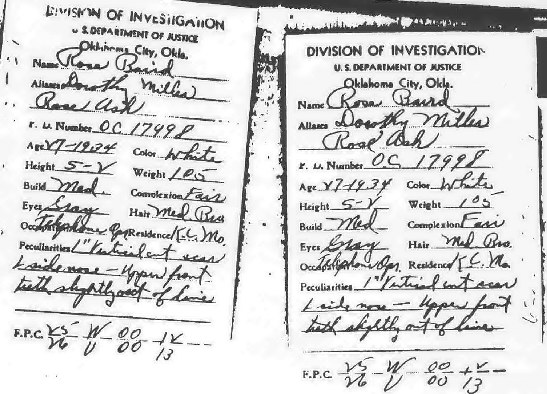 DIVISION OF INVESTIGATION
U.S. DEPARTMENT OF JUSTICE
Oklahoma City, Okla.
Name Rose Baird
Aliases Dorothy Miller
Rose Ash
F. D. Number OC 17998
Age 27-1934 Color White
Height 5-2 Weight 105
Build Med. Complexion Fair
Eyes Gray Hair Med Bro
Occupation Telephone Opr. Residence K.C. Mo.
Peculiarities 1" Vertical cut scar
L side nose - Upper front
teeth slightly out of line
F.P.C. 25 W 00 12
26 U 00 13
DIVISION OF INVESTIGATION
U.S. DEPARTMENT OF JUSTICE
Oklahoma City, Okla.
Name Rose Baird
Aliases Dorothy Miller
Rose Ash
F. D. Number OC 17998
Age 27-1934 Color White
Height 5-2 Weight 105
Build Med Complexion Fair
Eyes Gray Hair Med Bro.
Occupation Telephone Opr. Residence K.C. Mo.
Peculiarities 1" Vertical cut scar
L side nose - Upper front
teeth slightly out of line
F.P.C. 25 W 00 12
26 U 00 13